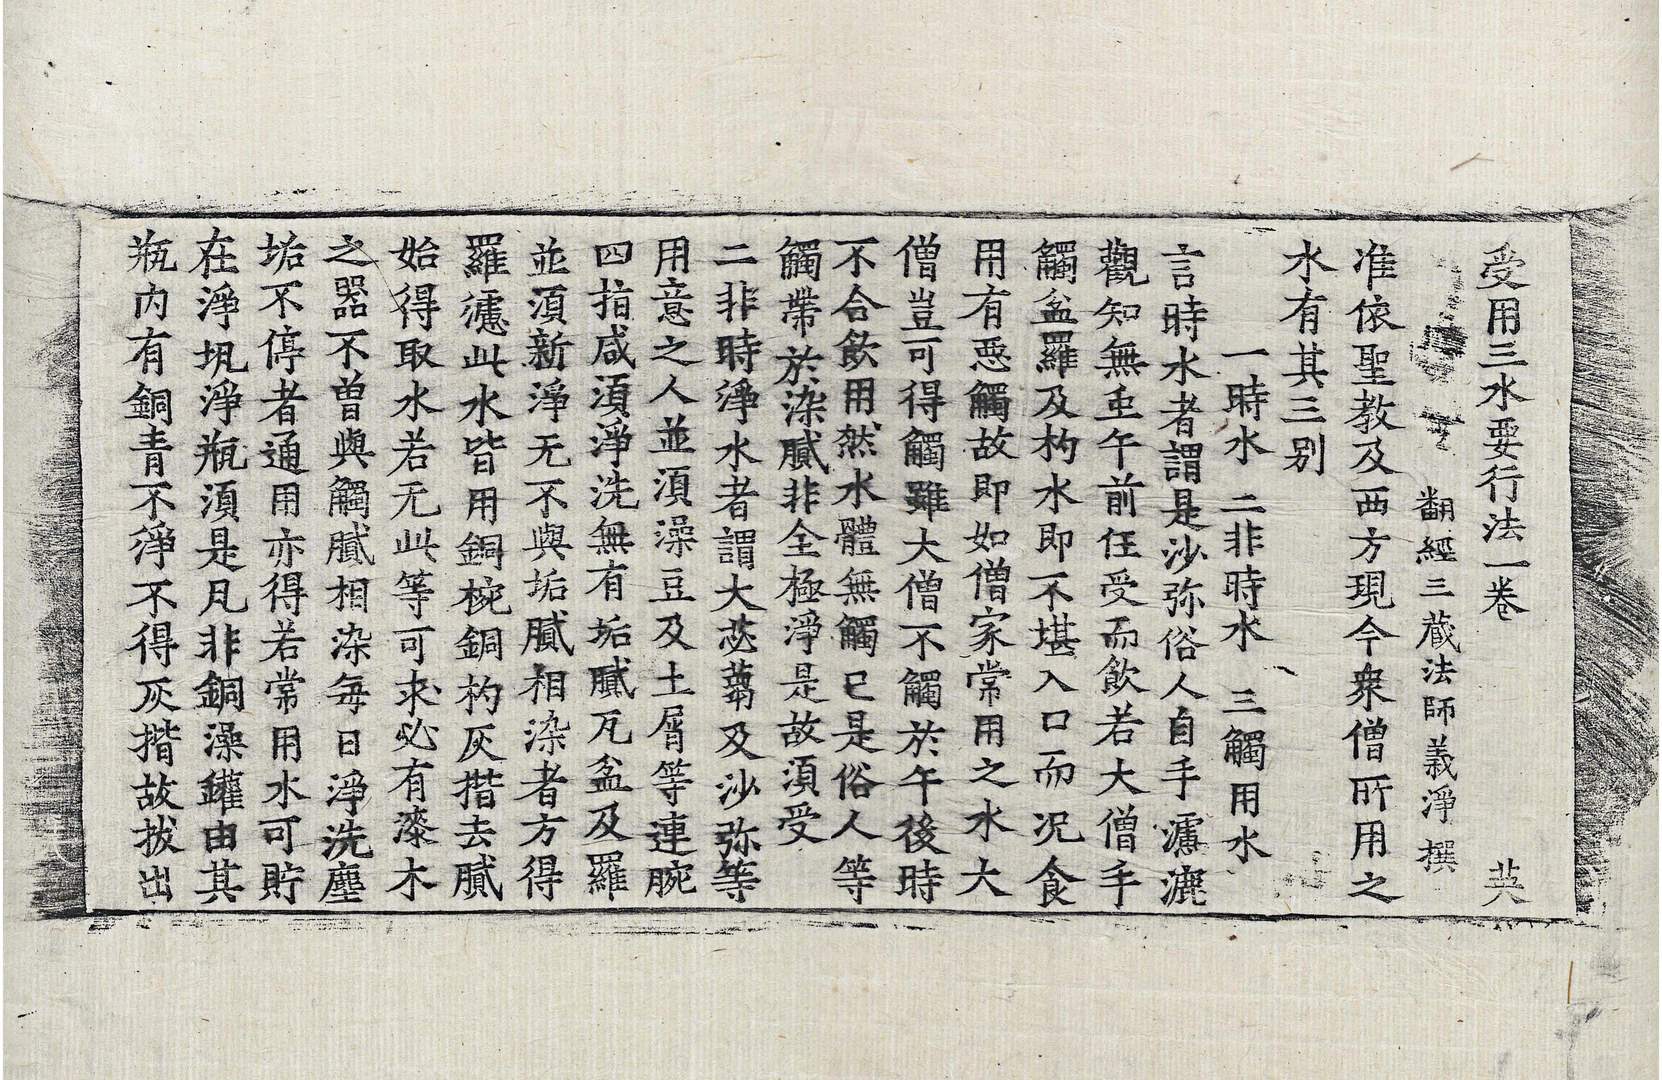 受用三水要行法一卷 英
翻經三藏法師義淨撰
准依聖教及西方現今衆僧所用之
水有其三别
一時水 二非時水 三觸用水
言時水者謂是沙弥俗人自手濾漉
觀知無虫午前任受而飲若大僧手
觸盆羅及杓水即不堪入口而况食
用有惡觸故即如僧家常用之水大
僧豈可得觸雖大僧不觸於午後時
不合飲用然水體無觸已是俗人等
觸帶於染膩非全極淨是故須受
二非時淨水者謂大苾蒭及沙弥等
用意之人並須澡豆及土屑等連腕
四指咸須淨洗無有垢膩瓦盆及羅
並須新淨无不與垢膩相染者方得
羅濾此水皆用銅椀銅杓灰揩去膩
始得取水若无此等可求必有漆木
之器不曾與觸膩相染每日淨洗塵
垢不停者通用亦得若常用水可貯
在淨瓨淨瓶須是凡非銅澡鑵由其
瓶内有銅青不淨不得灰揩故拔出